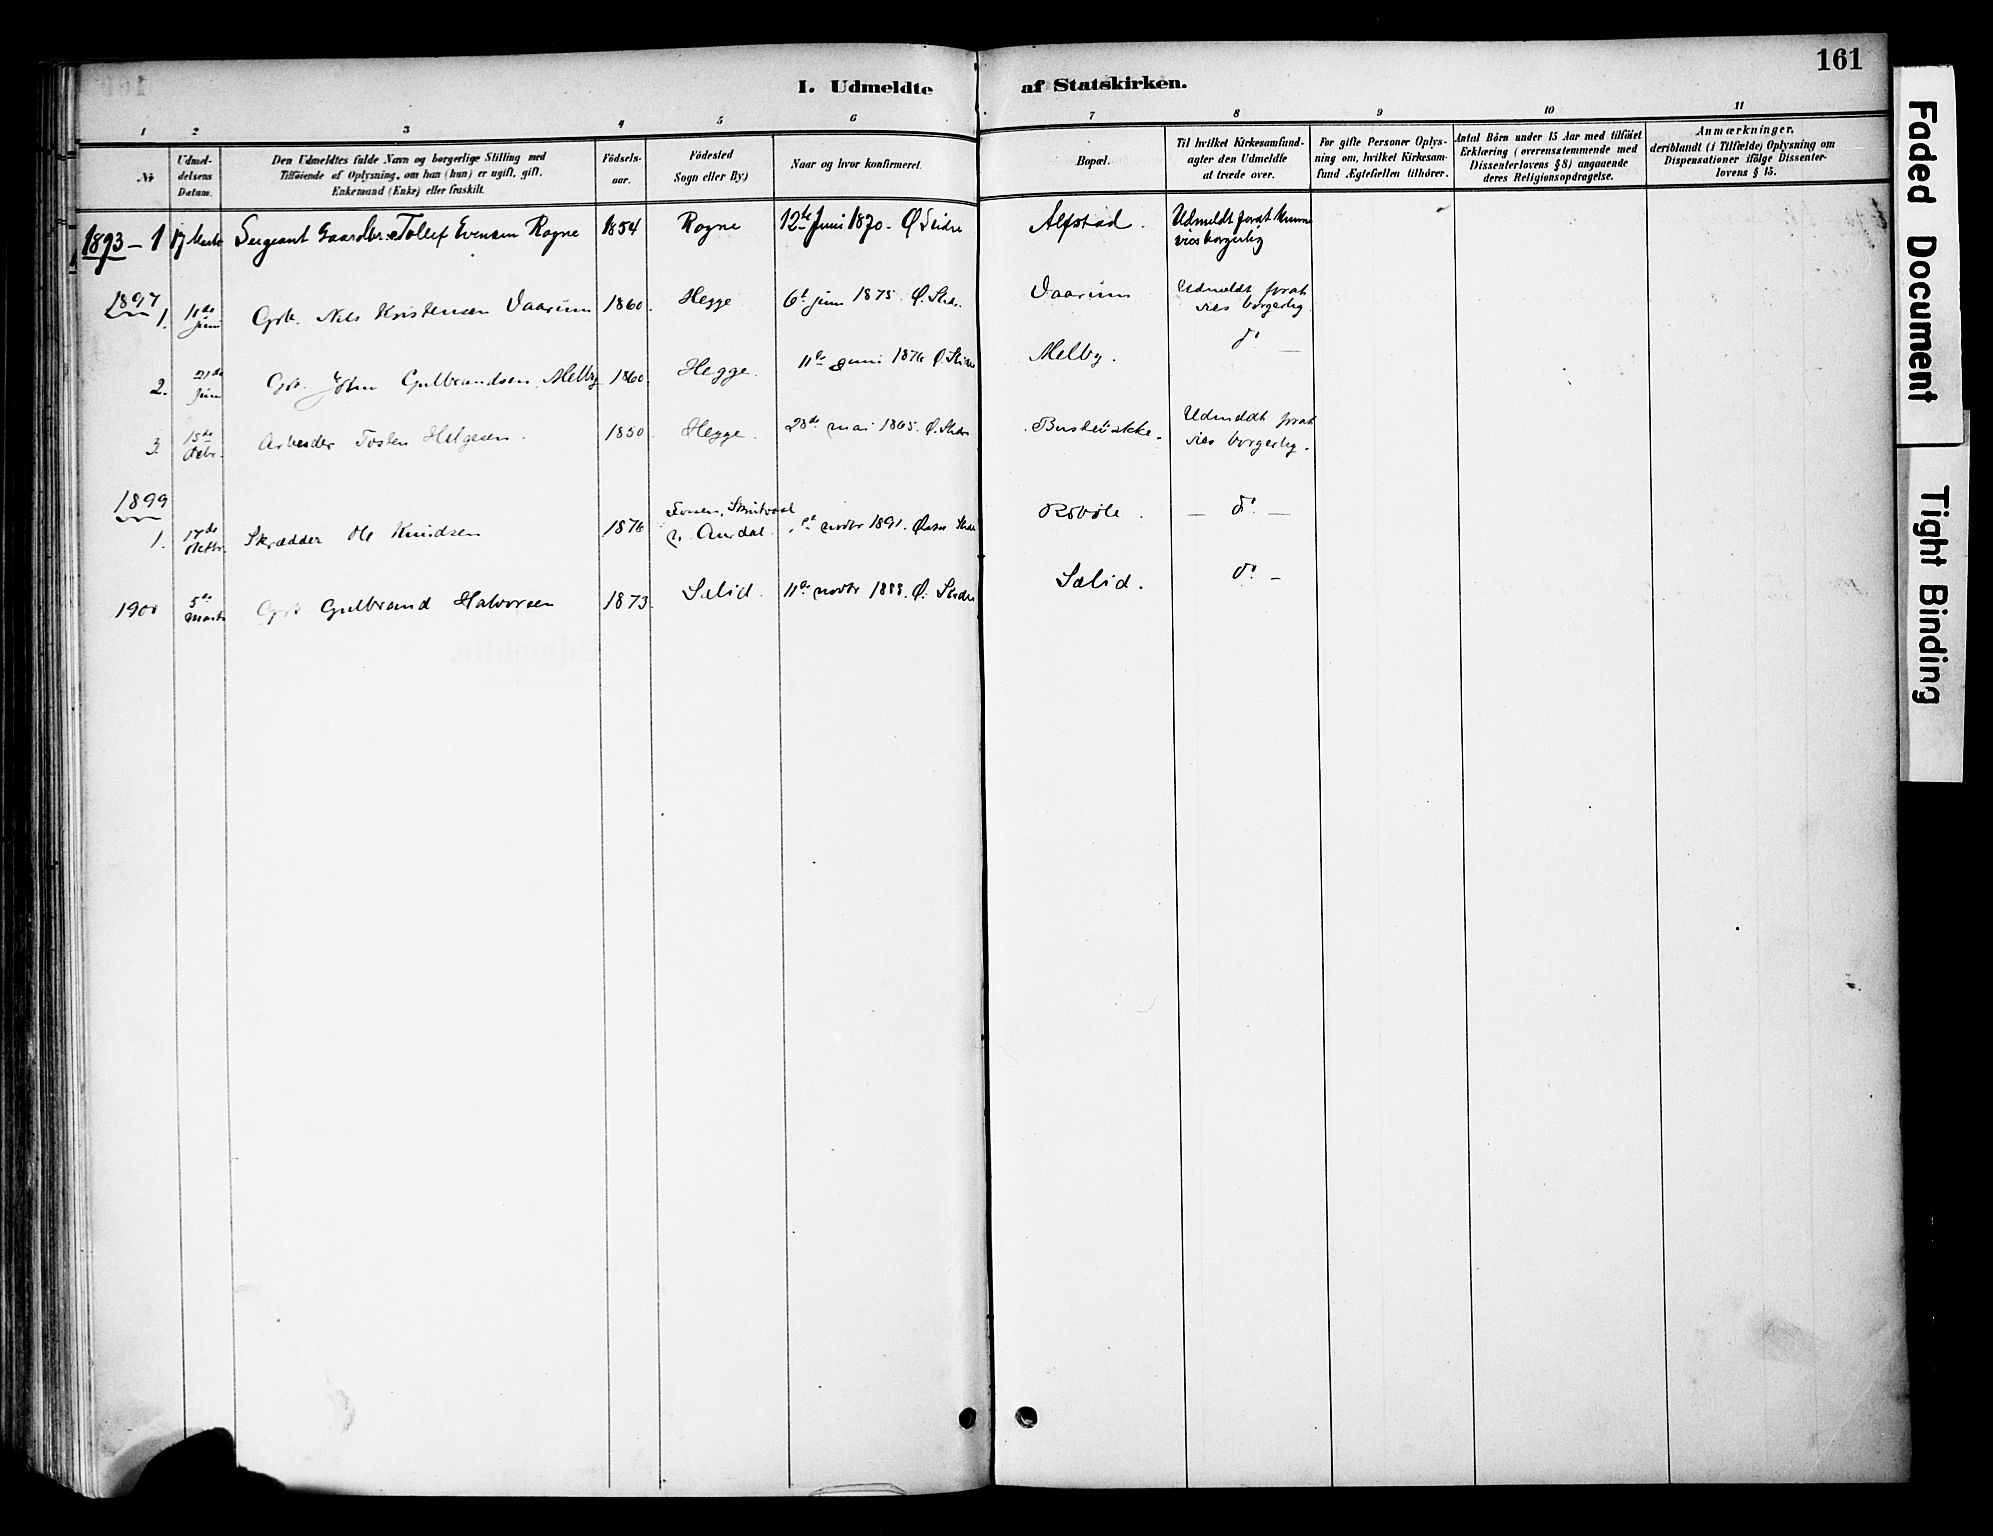 161
I. Udmeldte af Statskirken.
1 2 3 4 5 6 7 8 9 10 11
No
Udmel-
delsens
Datum.
Den Udmeldtes fulde Navn og borgerlige Stilling med
Tilføiende af Oplysning, om han (hun) er ugift, gift,
Enkemand (Enke) eller fraskilt.
Fødsels-
aar.
Fødested
Sogn eller By)
Naar og hvor konfirmeret.
Bopæl.
Til hvilket Kirkesamfund-
agter den Udmeldte
at træde over.
For gifte Personer Oplys-
ning om, hvilket Kirkesam-
fund Ægtefællen tilhører.
Antal Børn under 15 Aar med tilføiet
Erklæring (overensstemmende med
Dissenterlovens § 8) angaaende
deres Religionsopdragelse.
Anmærkninger,
deriblandt (i Tilfælde) Oplysning om
Dispensationer ifølge Dissenter-
lovens § 15.
1893 - 1 17 Marts Sergeant Gaardbr. Tollef Evensen Rogne 1854 Rogne 12te Juni 1870. Ø Slidre Alfstad. Udmeldt forat kunne
vies borgerlig
1897
1. Juni Gbr. Nils Kristensen Vaarum 1860. Hegge 6te juni 1875. Ø. Slidr. Vaarum Udmeldt forat
vies borgerlig
2. 21de Juni Gbr. John Gulbrandsen Melby 1860. Hegge. 11te Juni 1876 Ø. Slidre Melby. do —
3. 15de Arbeider Tosten Helgesen. 1850. Hegge. 28de mai 1865. Ø. Slidre Udmeldt forat
vies borgerlig.
1899
1. 17de Oktbr. Skrædder Ole Knudsen 1876 Fossen, Skrutvold
n. Aurdal. novbr 1891. Østre Slidr Robøle. — do. —
1900 5te Marts Gbr Gulbrand Halvorsen 1873. Sælid. 11te novbr 1888. Ø. Slidre Sælid. do. —
Faded Document
Tight Binding